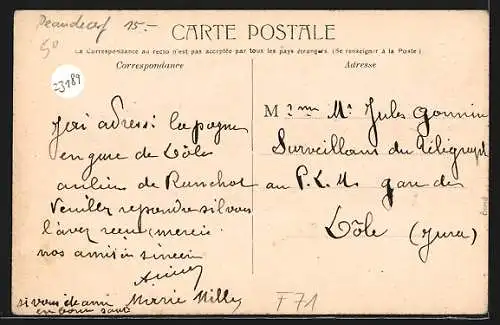 15.-
CARTE POSTALE
La Correspondance au recto n'est pas acceptée par tous les pays étrangers. (Se renseigner à la Poste)
Correspondance
Adresse
23189
J'ai adressé la pagne
en gare de Dôle
au lieu de Ranchot
Veuillez repondre si vous
l'avez recu, merci
nos amitié sincère
Marie Milly
si vous de ami
en bonne santé
M Jules Gonnin
Surveillant du Télégraph
au P. L. M. gare de
Dôle (Jura)
F71